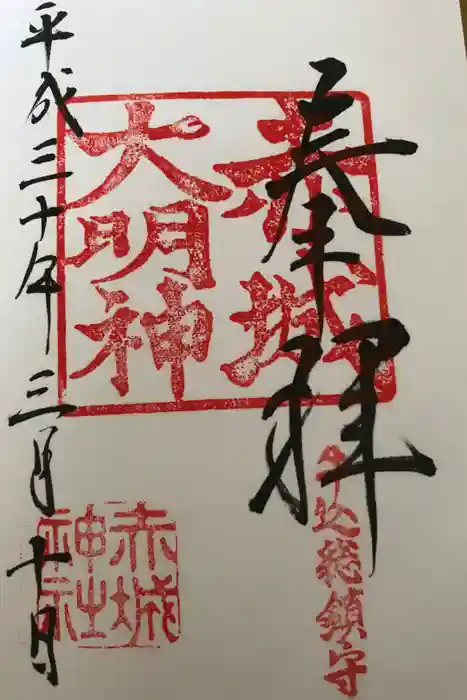 奉拝
赤城
大明神
牛込総鎮守
赤城
神社
平成三十年三月十日